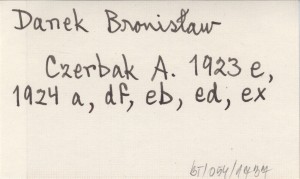 Danek Bronisław
Czerbak A. 1923 e,
1924 a, df, eb, ed, ex